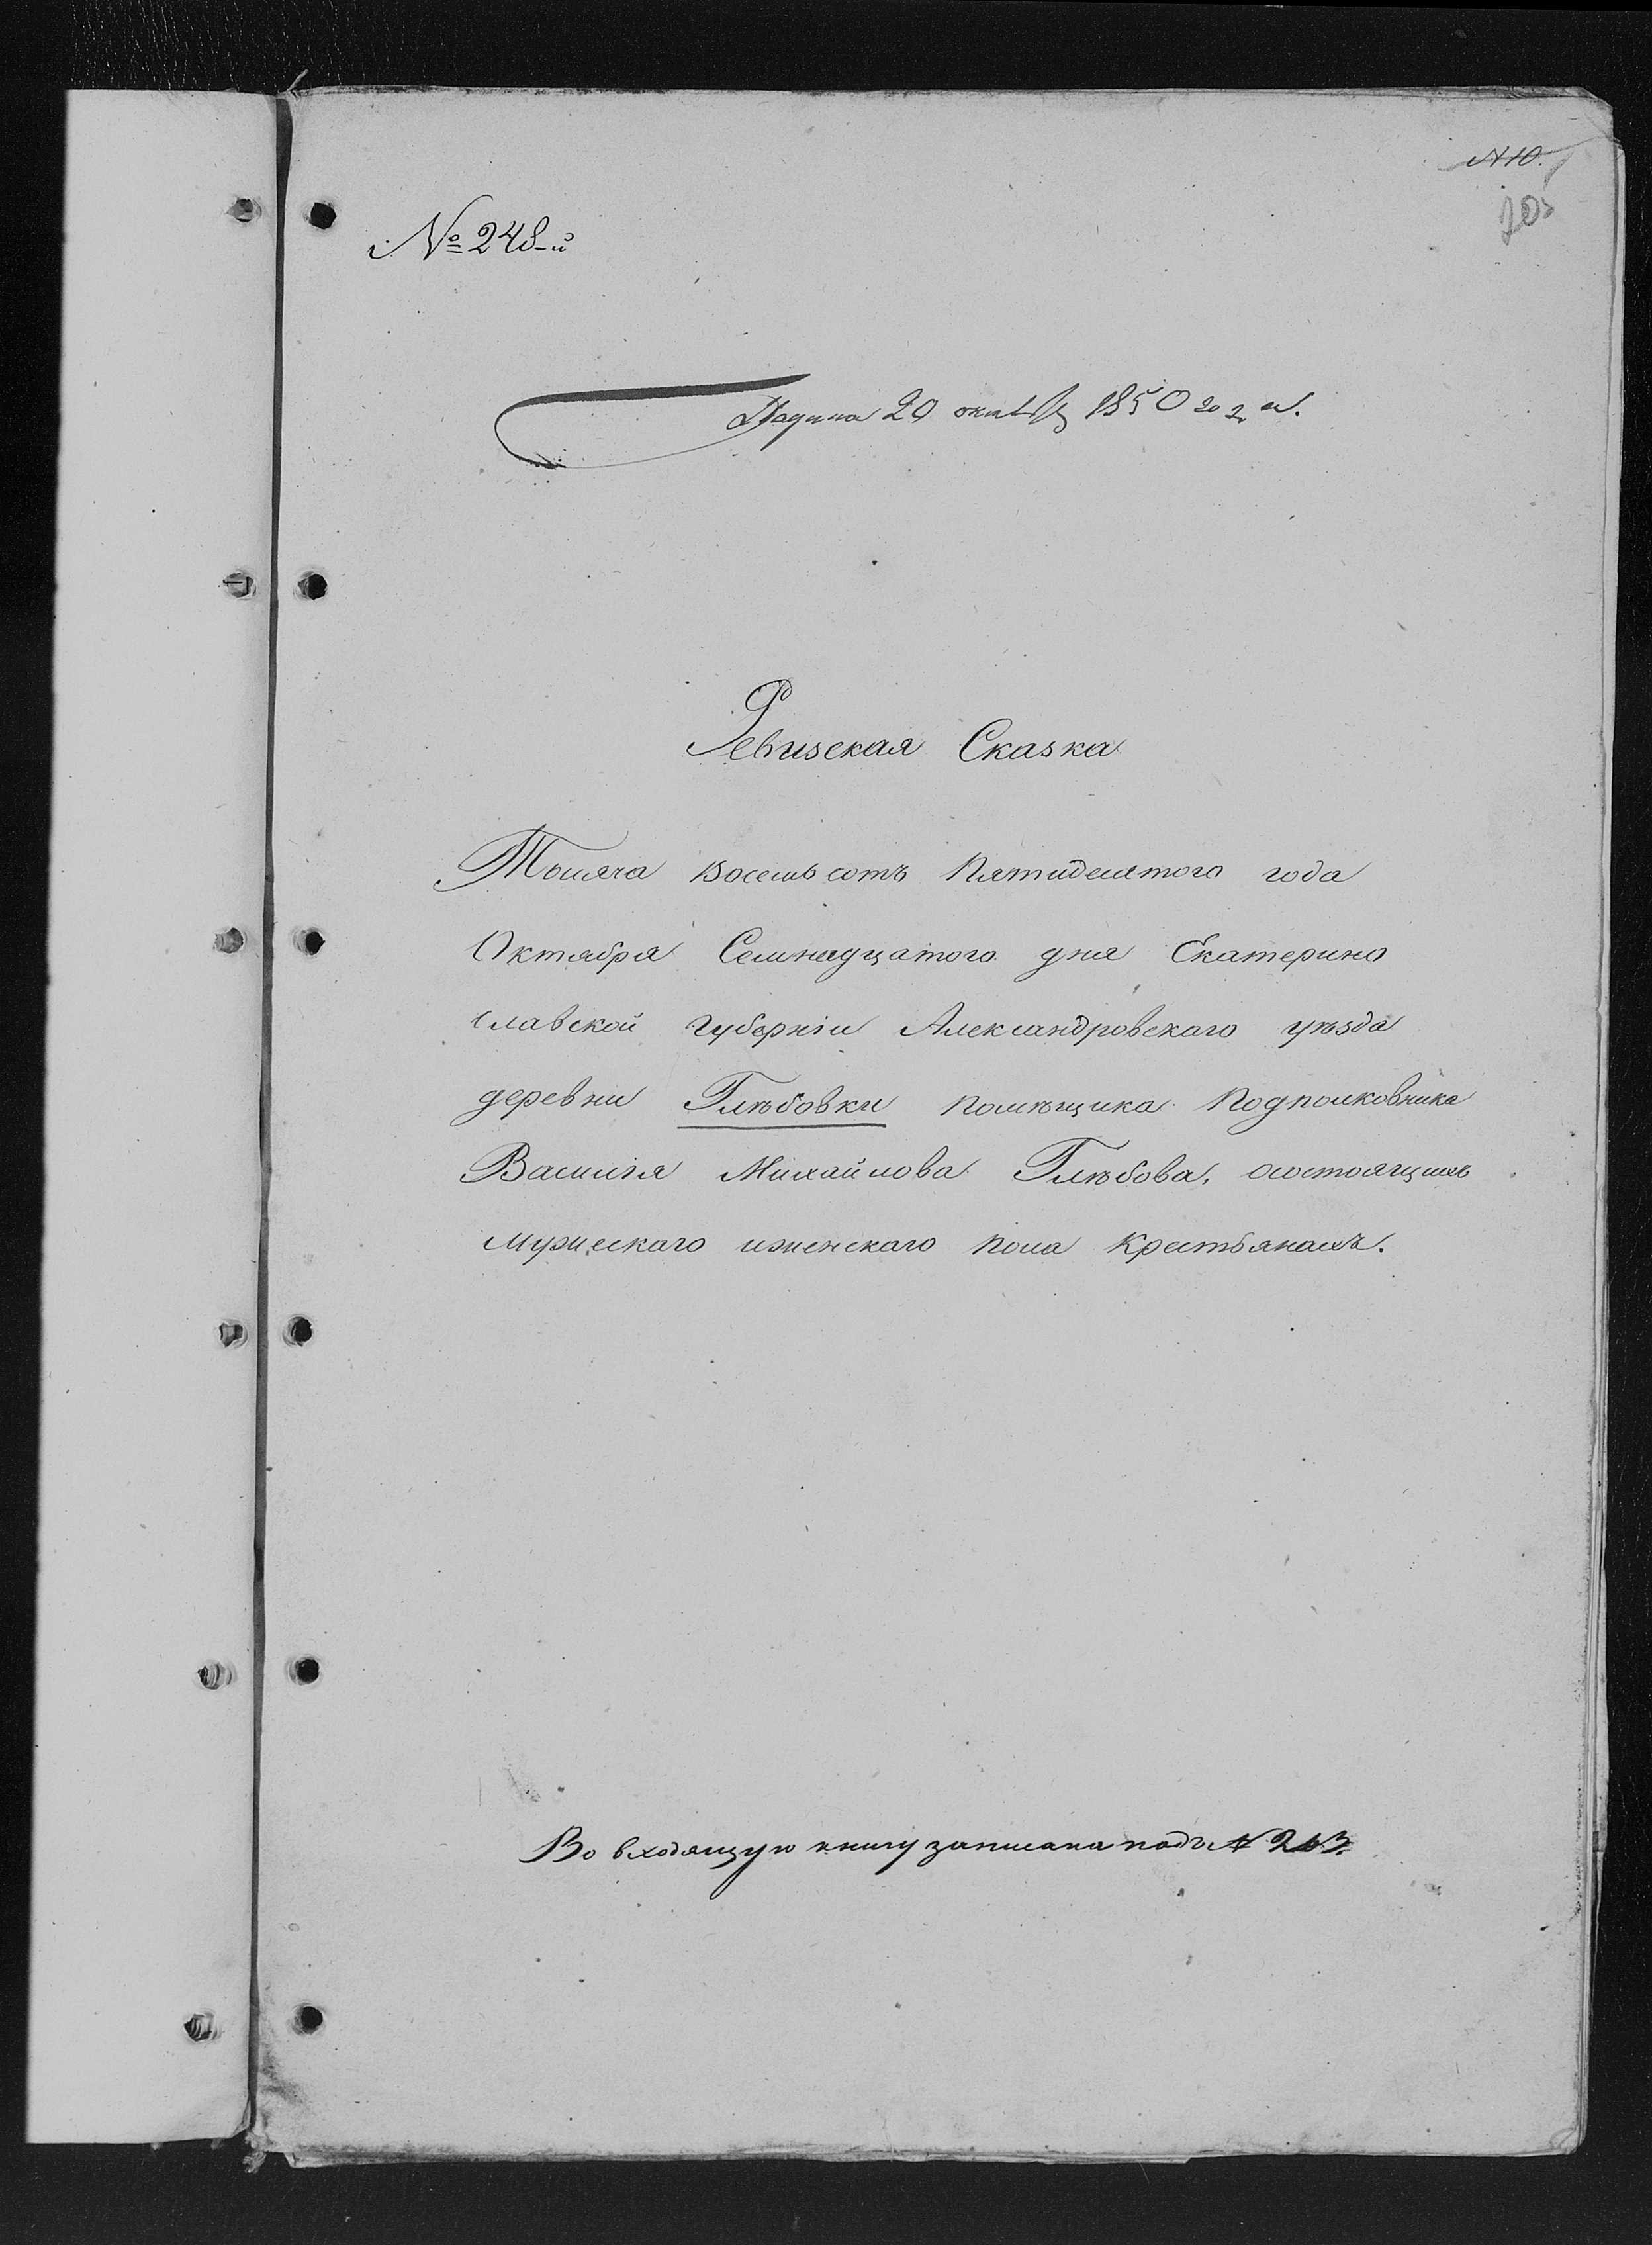 № 248-й
Подана 20 октября 1850 года.
Ревизская Сказка
Тысяча восемь сотъ Пятидесятого года
Октября Семнадцатого дня Екатерино
славской Губерніи Александровскаго уѣзда
деревни Глѣбовки помѣщика Подполковника
Василія Михайлова Глѣбова, осостоящихъ
мужескаго иженскаго пола Крестьянахъ.
Во входящую книгу записана подъ №